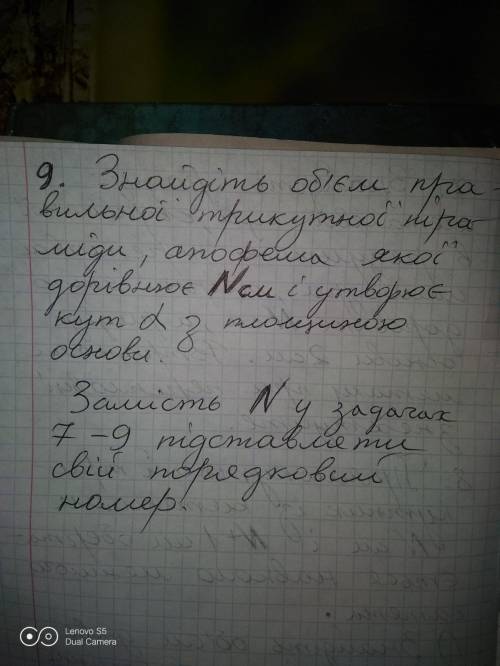 9. Знайдіть об'єм пра
вильної трикутної піра
міди, апофема якої
дорівнює N см і утворює
кут α з площиною
основи.
Замість N у задачах
7-9 підставляєти
свій порядковий
номер.
Lenovo S5
Dual Camera